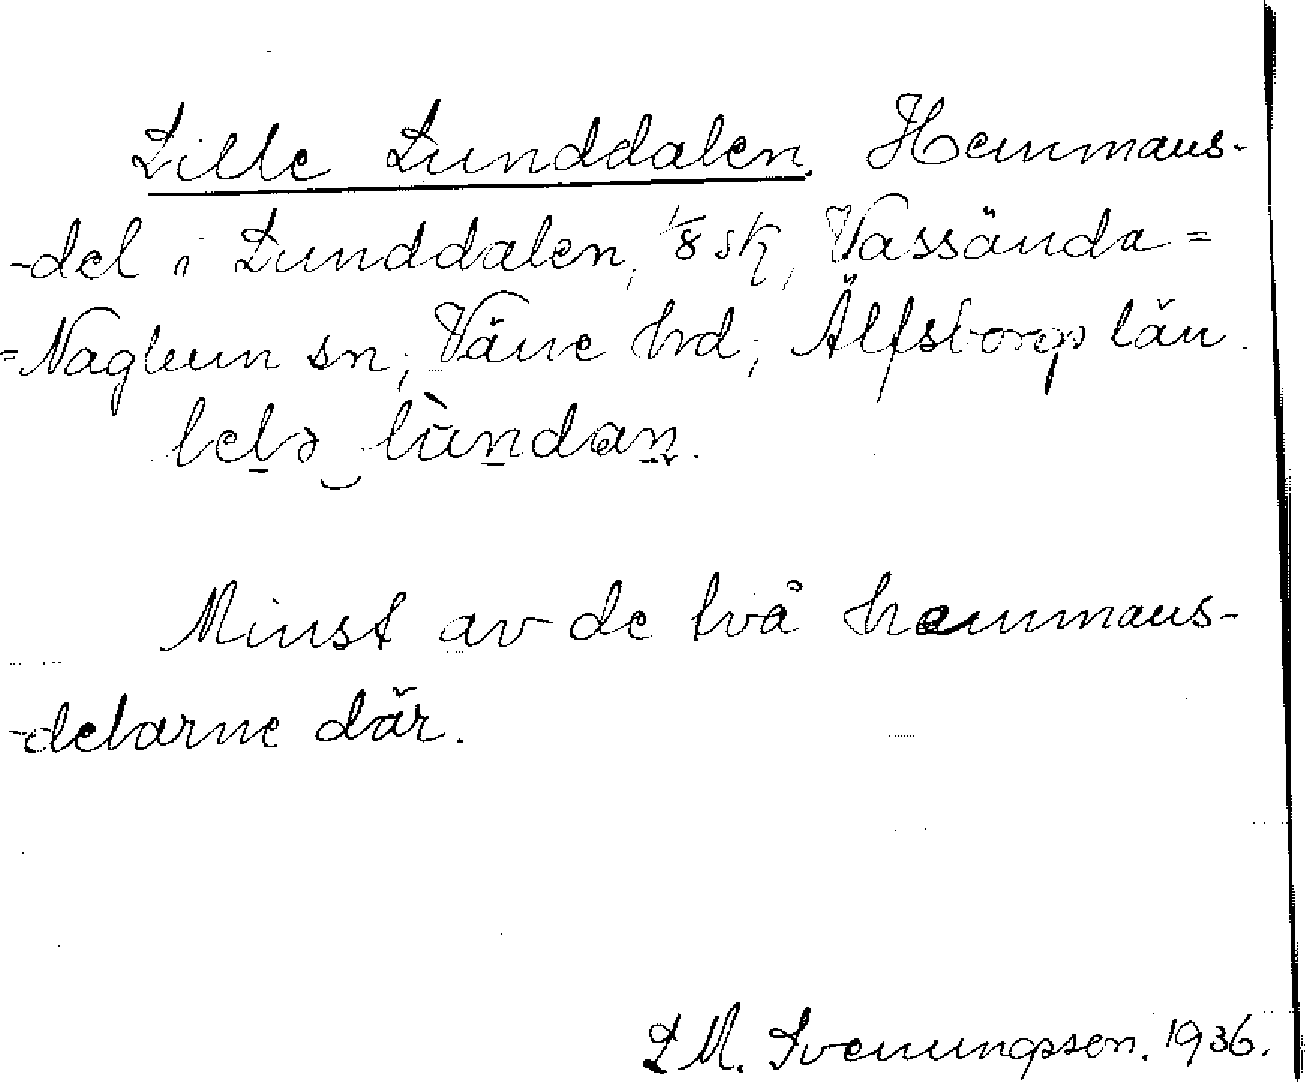 Lille Lunddalen. Hemmans-
-del i Lunddalen, 1/8 sk, Vassända=
=Naglum sn, Väne hd, Älfsborgs län.
lelə lùndan.
Minst av de två hemmans-
-delarne där.
L M. Svenungsson. 1936.